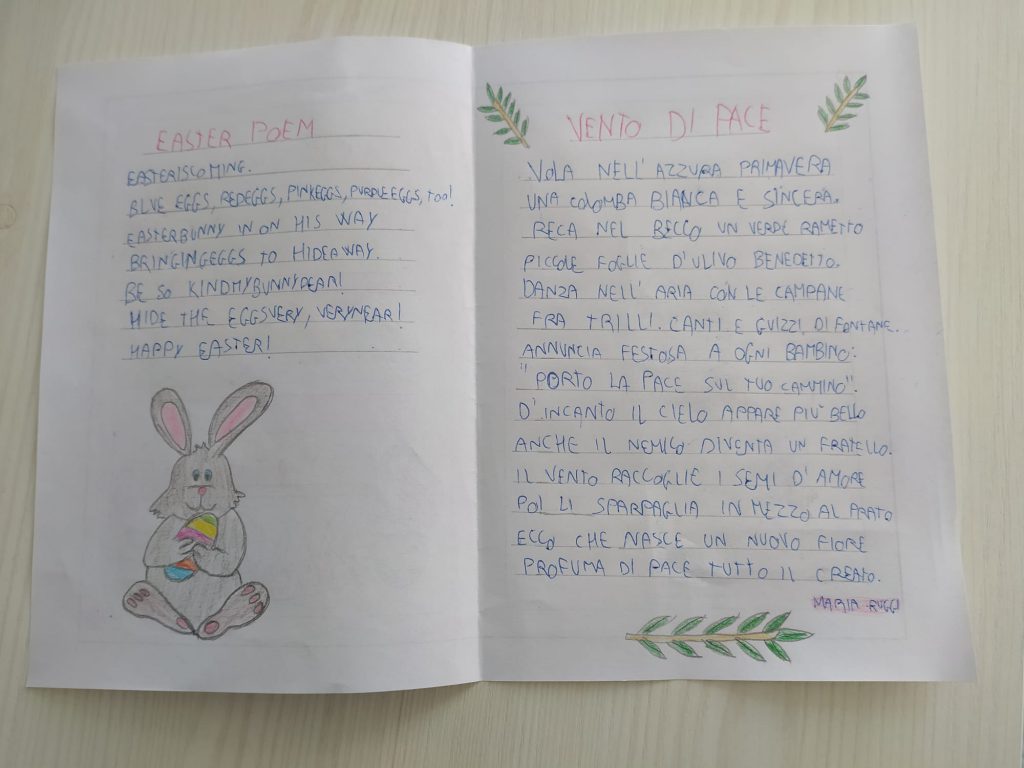 EASTER POEM
EASTERISCOMING.
BLUE EGGS, REDEGGS, PINKEGGS, PURPLEEGGS, TOO!
EASTERBUNNY IN ON HIS WAY
BRINGINGEGGS TO HIDEAWAY.
BE SO KINDMYBUNNYDEAR!
HIDE THE EGGSVERY, VERYNEAR!
HAPPY EASTER!
VENTO DI PACE
VOLA NELL'AZZURA PRIMAVERA
UNA COLOMBA BIANCA E SINCERA.
RECA NEL BECCO UN VERDE RAMETTO
PICCOLE FOGLIE D'ULIVO BENEDETTO.
DANZA NELL'ARIA CON LE CAMPANE
FRA TRILLI. CANTI E GUIZZI DI FONTANE.
ANNUNCIA FESTOSA A OGNI BAMBINO:
"PORTO LA PACE SUL TUO CAMMINO".
D'INCANTO IL CIELO APPARE PIU' BELLO
ANCHE IL NEMICO DIVENTA UN FRATELLO.
IL VENTO RACCOGLIE I SEMI D'AMORE
POI LI SPARPAGLIA IN MEZZO AL ARATO
ECCO CHE NASCE UN NUOVO FIORE
PROFUMA DI PACE TUTTO IL CREATO.
MARIA RUGGI